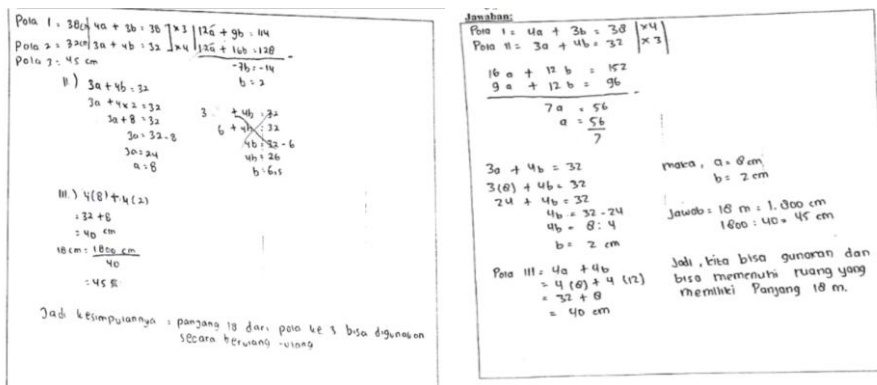 Pola 1 = 38cm | 4a + 3b = 38 | x 3 | 12a + 9b = 114
Pola 2 = 32cm | 3a + 4b = 32 | x 4 | 12a + 16b = 128
Pola 3 = 45 cm
-7b = -14
b = 2
II) 3a + 4b = 32
3a + 4 x 2 = 32
3a + 8 = 32
3a = 32 - 8
3a = 24
a = 8
3 + 4b = 32
6 + 4b = 32
4b = 32 - 6
4b = 26
b = 6,5
III.) 4(8) + 4(2)
= 32 + 8
= 40 cm
18 cm = 1800 cm
40
= 45
Jadi kesimpulannya : panjang 18 dari pola ke 3 bisa digunakan
secara berulang-ulang
Jawaban:
Pola I = 4a + 3b = 38 | x 4
Pola II = 3a + 4b = 32 | x 3
16 a + 12 b = 152
9 a + 12 b = 96 -
7a = 56
a = 56
7
3a + 4b = 32
3(8) + 4b = 32
24 + 4b = 32
4b = 32 - 24
4b = 8 : 4
b = 2 cm
maka, a = 8 cm
b = 2 cm
Jawab = 18 m = 1.800 cm
1800 : 40 = 45 cm
Pola III = 4a + 4b
= 4 (8) + 4 (12)
= 32 + 8
= 40 cm
Jadi, kita bisa gunakan dan
bisa memenuhi ruang yang
memiliki Panjang 18 m.